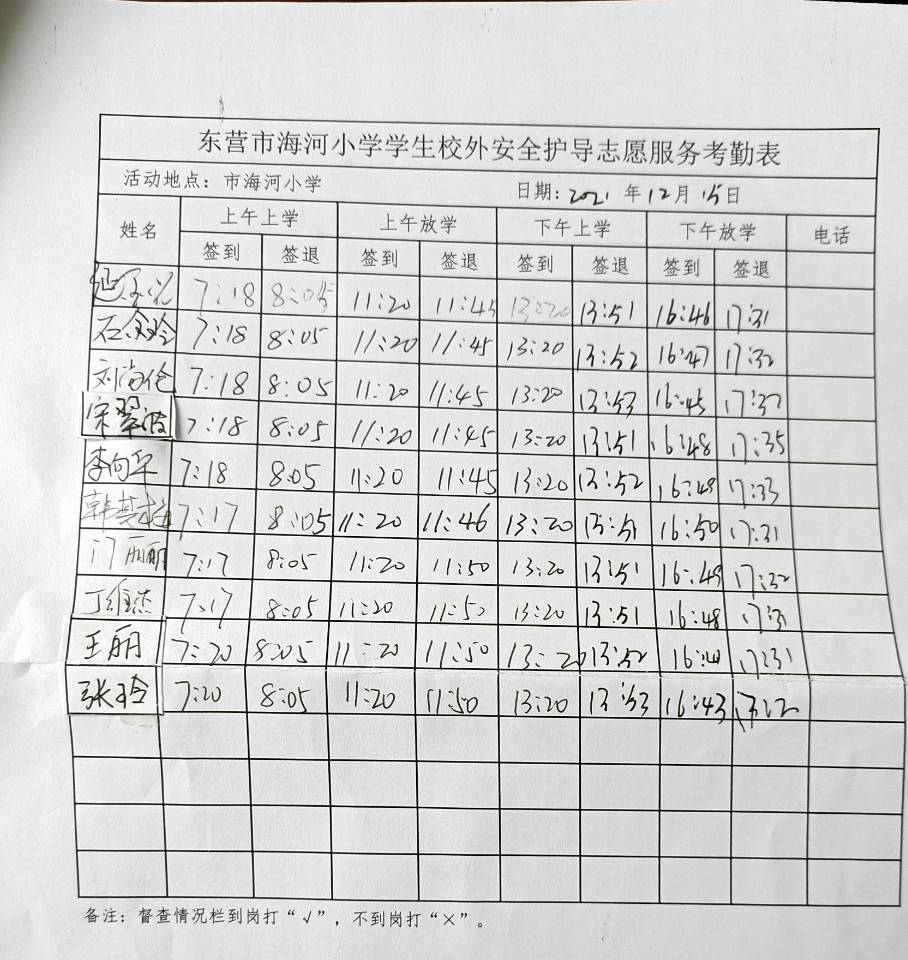 东营市海河小学学生校外安全护导志愿服务考勤表
活动地点：市海河小学 日期：2021年12月15日
姓名 上午上学 上午放学 下午上学 下午放学 电话
签到 签退 签到 签退 签到 签退 签到 签退
7:18 8:05 11:20 11:45 13:20 13:51 16:46 17:31
石 玲 7:18 8:05 11:20 11:45 13:20 13:52 16:47 17:32
刘尚伦 7:18 8:05 11:20 11:45 13:20 13:53 16:45 17:32
宋翠波 7:18 8:05 11:20 11:45 13:20 13:51 16:48 17:35
李向华 7:18 8:05 11:20 11:45 13:20 13:52 16:49 17:33
韩梅 7:17 8:05 11:20 11:46 13:20 16:50 17:31
门丽丽 7:17 8:05 11:20 11:50 13:20 13:51 16:49 17:32
丁维杰 7:17 8:05 11:20 11:50 13:20 13:51 16:48 17:31
王丽 7:20 8:05 11:20 11:50 13:20 13:52 17:31
张玲 7:20 8:05 11:20 11:50 13:20 13:53 16:43
备注：督查情况栏到岗打“√”，不到岗打“×”。